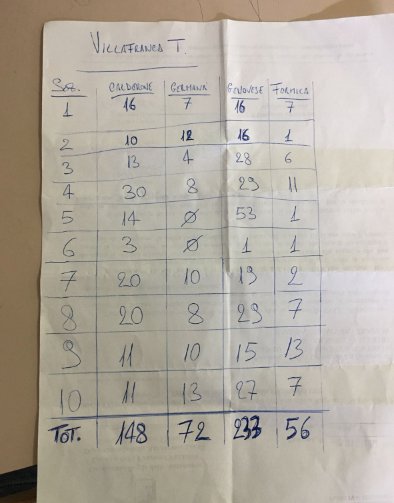 VILLAFRANCA T.
Sez. CALDERONE GERMANA GENOVESE FORMICA
1 16 7 16 7
2 10 12 16 1
3 13 4 28 6
4 30 8 29 11
5 14 Ø 53 1
6 3 Ø 1 1
7 20 10 19 2
8 20 8 29 7
9 11 10 15 13
10 11 13 27 7
TOT. 148 72 233 56